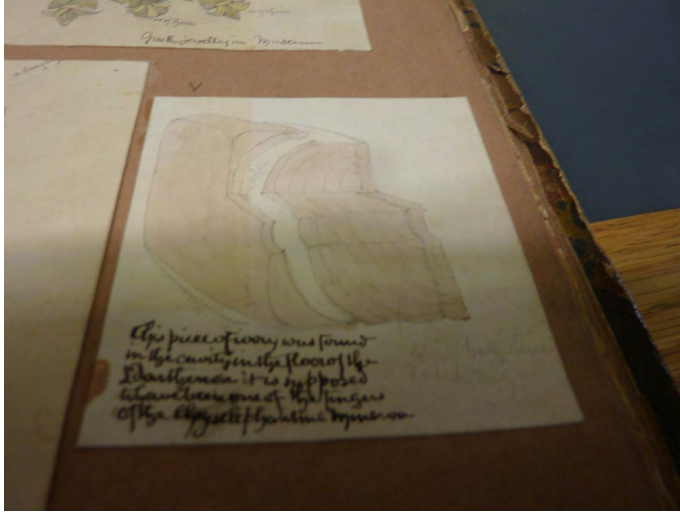 Greek jewellery in Museum
This piece of ivory was found
in the cavity in the floor of the
Parthenon it is supposed
to have been one of the fingers
of the Chryselephantine Minerva